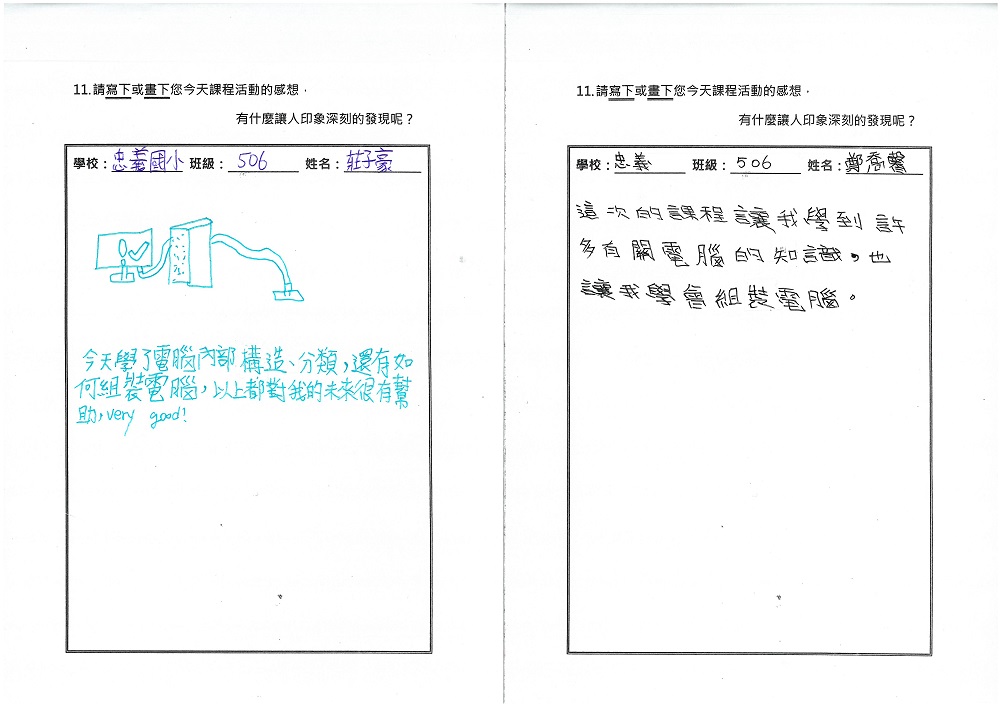 11.請寫下或畫下您今天課程活動的感想，
有什麼讓人印象深刻的發現呢？
學校：忠義國小 班級：506 姓名：莊子豪
今天學了電腦內部構造、分類，還有如
何組裝電腦，以上都對我的未來很有幫
助，very good!
11.請寫下或畫下您今天課程活動的感想，
有什麼讓人印象深刻的發現呢？
學校：忠義 班級：506 姓名：鄭喬馨
這次的課程讓我學到許
多有關電腦的知識，也
讓我學會組裝電腦。